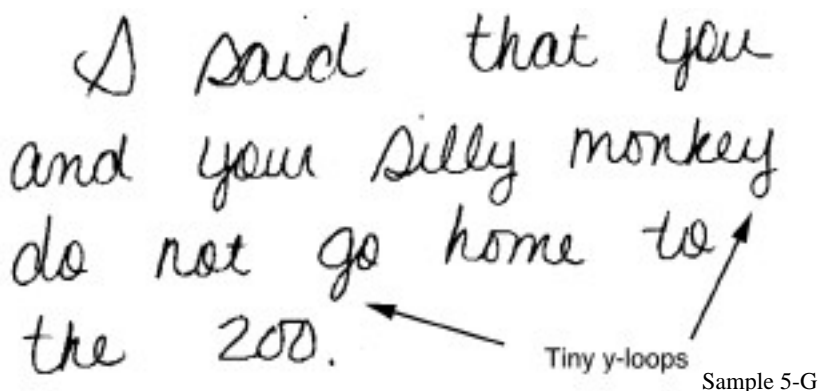 I said that you
and your silly monkey
do not go home to
the 200.
Tiny y-loops
Sample 5-G